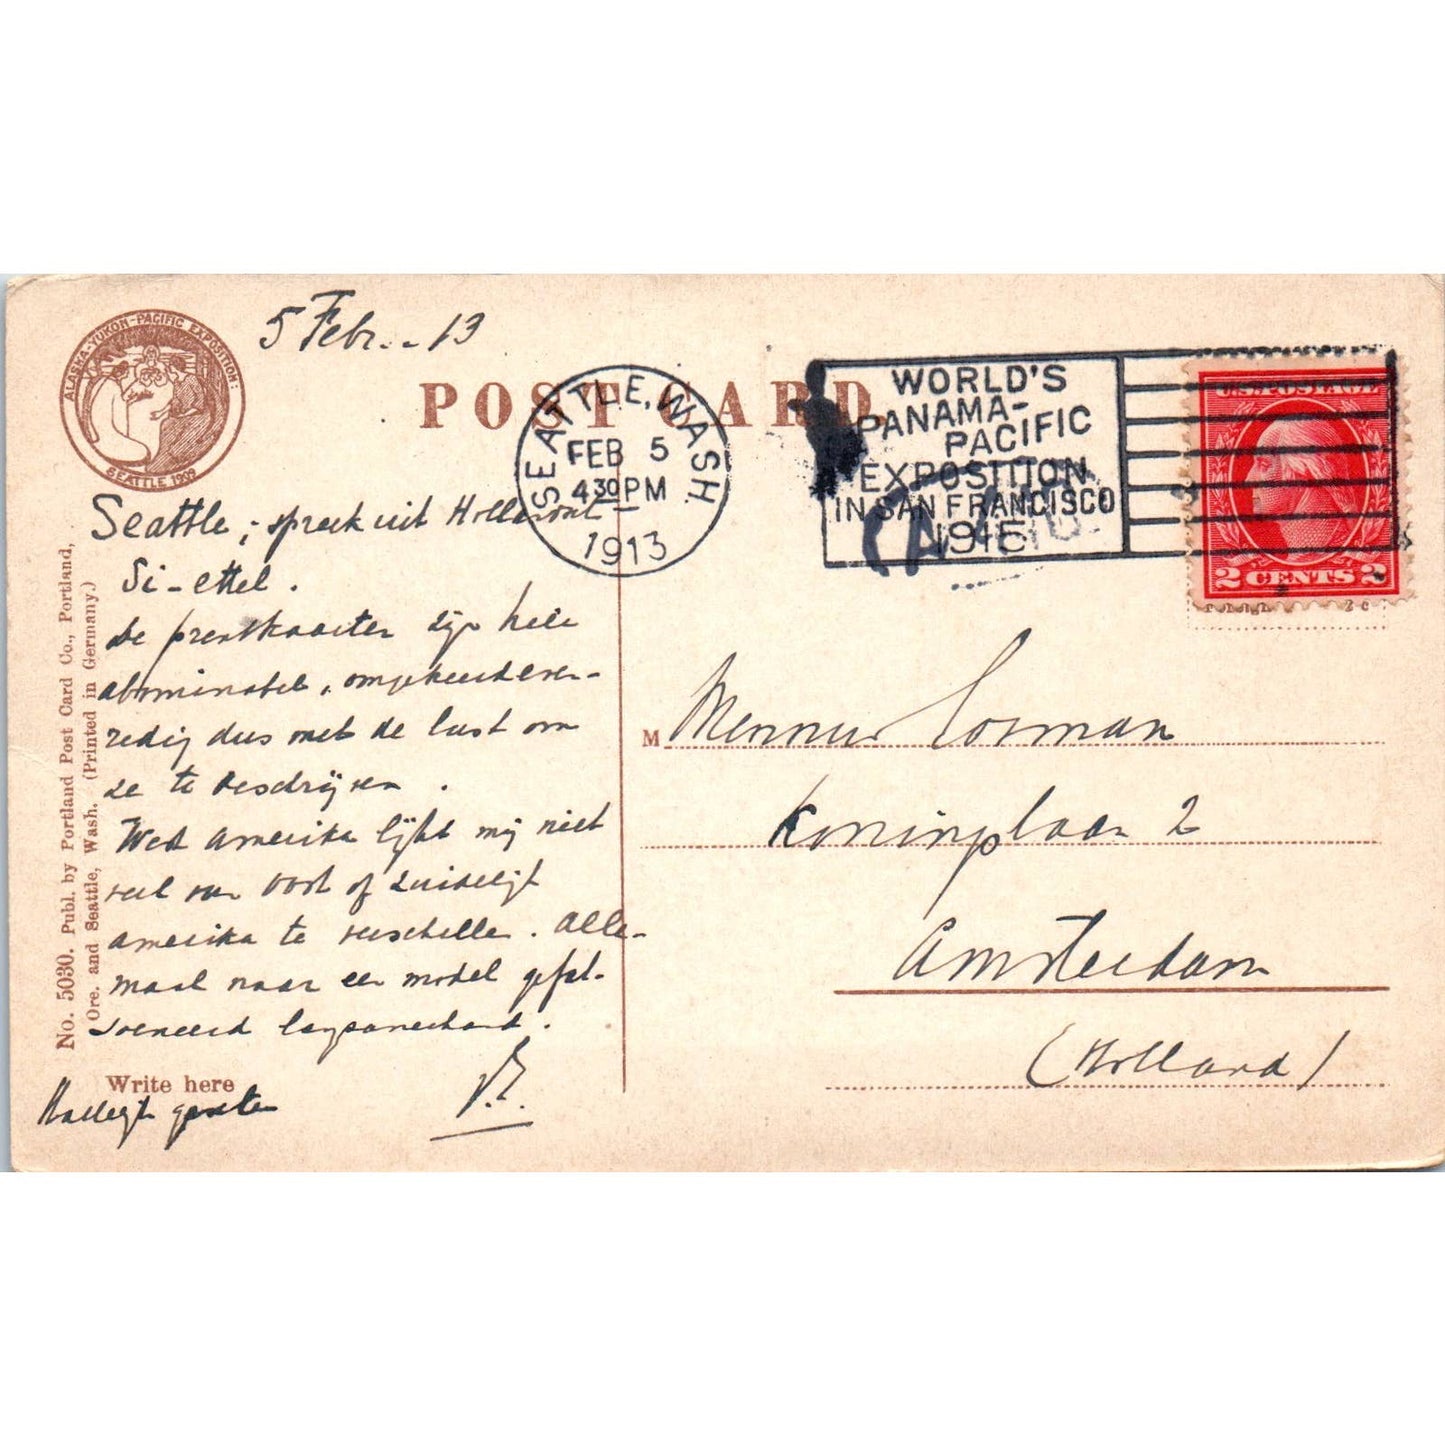 5 Febr. - 13
ALASKA-YUKON-PACIFIC EXPOSITION.
SEATTLE 1909
POST CARD
SEATTLE, WASH.
FEB 5
4 30 PM
1913
WORLD'S
PANAMA-
PACIFIC
EXPOSITION
IN SAN FRANCISCO
1915
U.S. POSTAGE
2 CENTS 2
Seattle; spreek uit
Si-ettel.
De prentkaarten zijn hier
abominabel, omgekeerd even-
redig dus met de lust om
ze te beschrijven.
West Amerika lijkt mij niet
veel van Oost of Zuidelijk
Amerika te verschillen. Alle-
maal naar een model
Hartelijk groeten
No. 5030. Publ. by Portland Post Card Co., Portland,
Ore. and Seattle, Wash. (Printed in Germany.)
Write here
M
Koninginplaan 2
Amsterdam
(Holland)